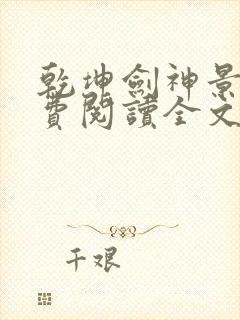 乾坤劍神景
費閱讀全文
千艰